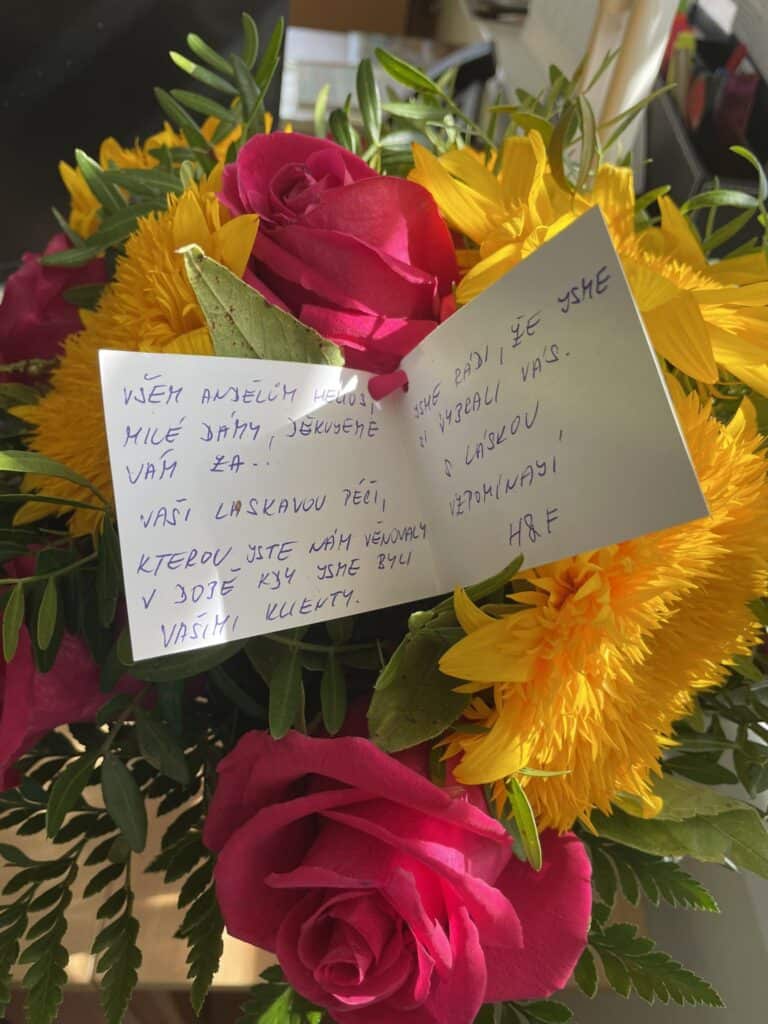 VŠEM ANDĚLŮM HELIOS,
MILÉ DÁMY, DĚKUJEME
VÁM ZA...
VAŠI LASKAVOU PÉČI,
KTEROU JSTE NÁM VĚNOVALY
V DOBĚ KDY JSME BYLI
VAŠIMI KLIENTY.
JSME RÁDI, ŽE JSME
SI VYBRALI VÁS.
S LÁSKOU
VZPOMÍNAJÍ
H&F